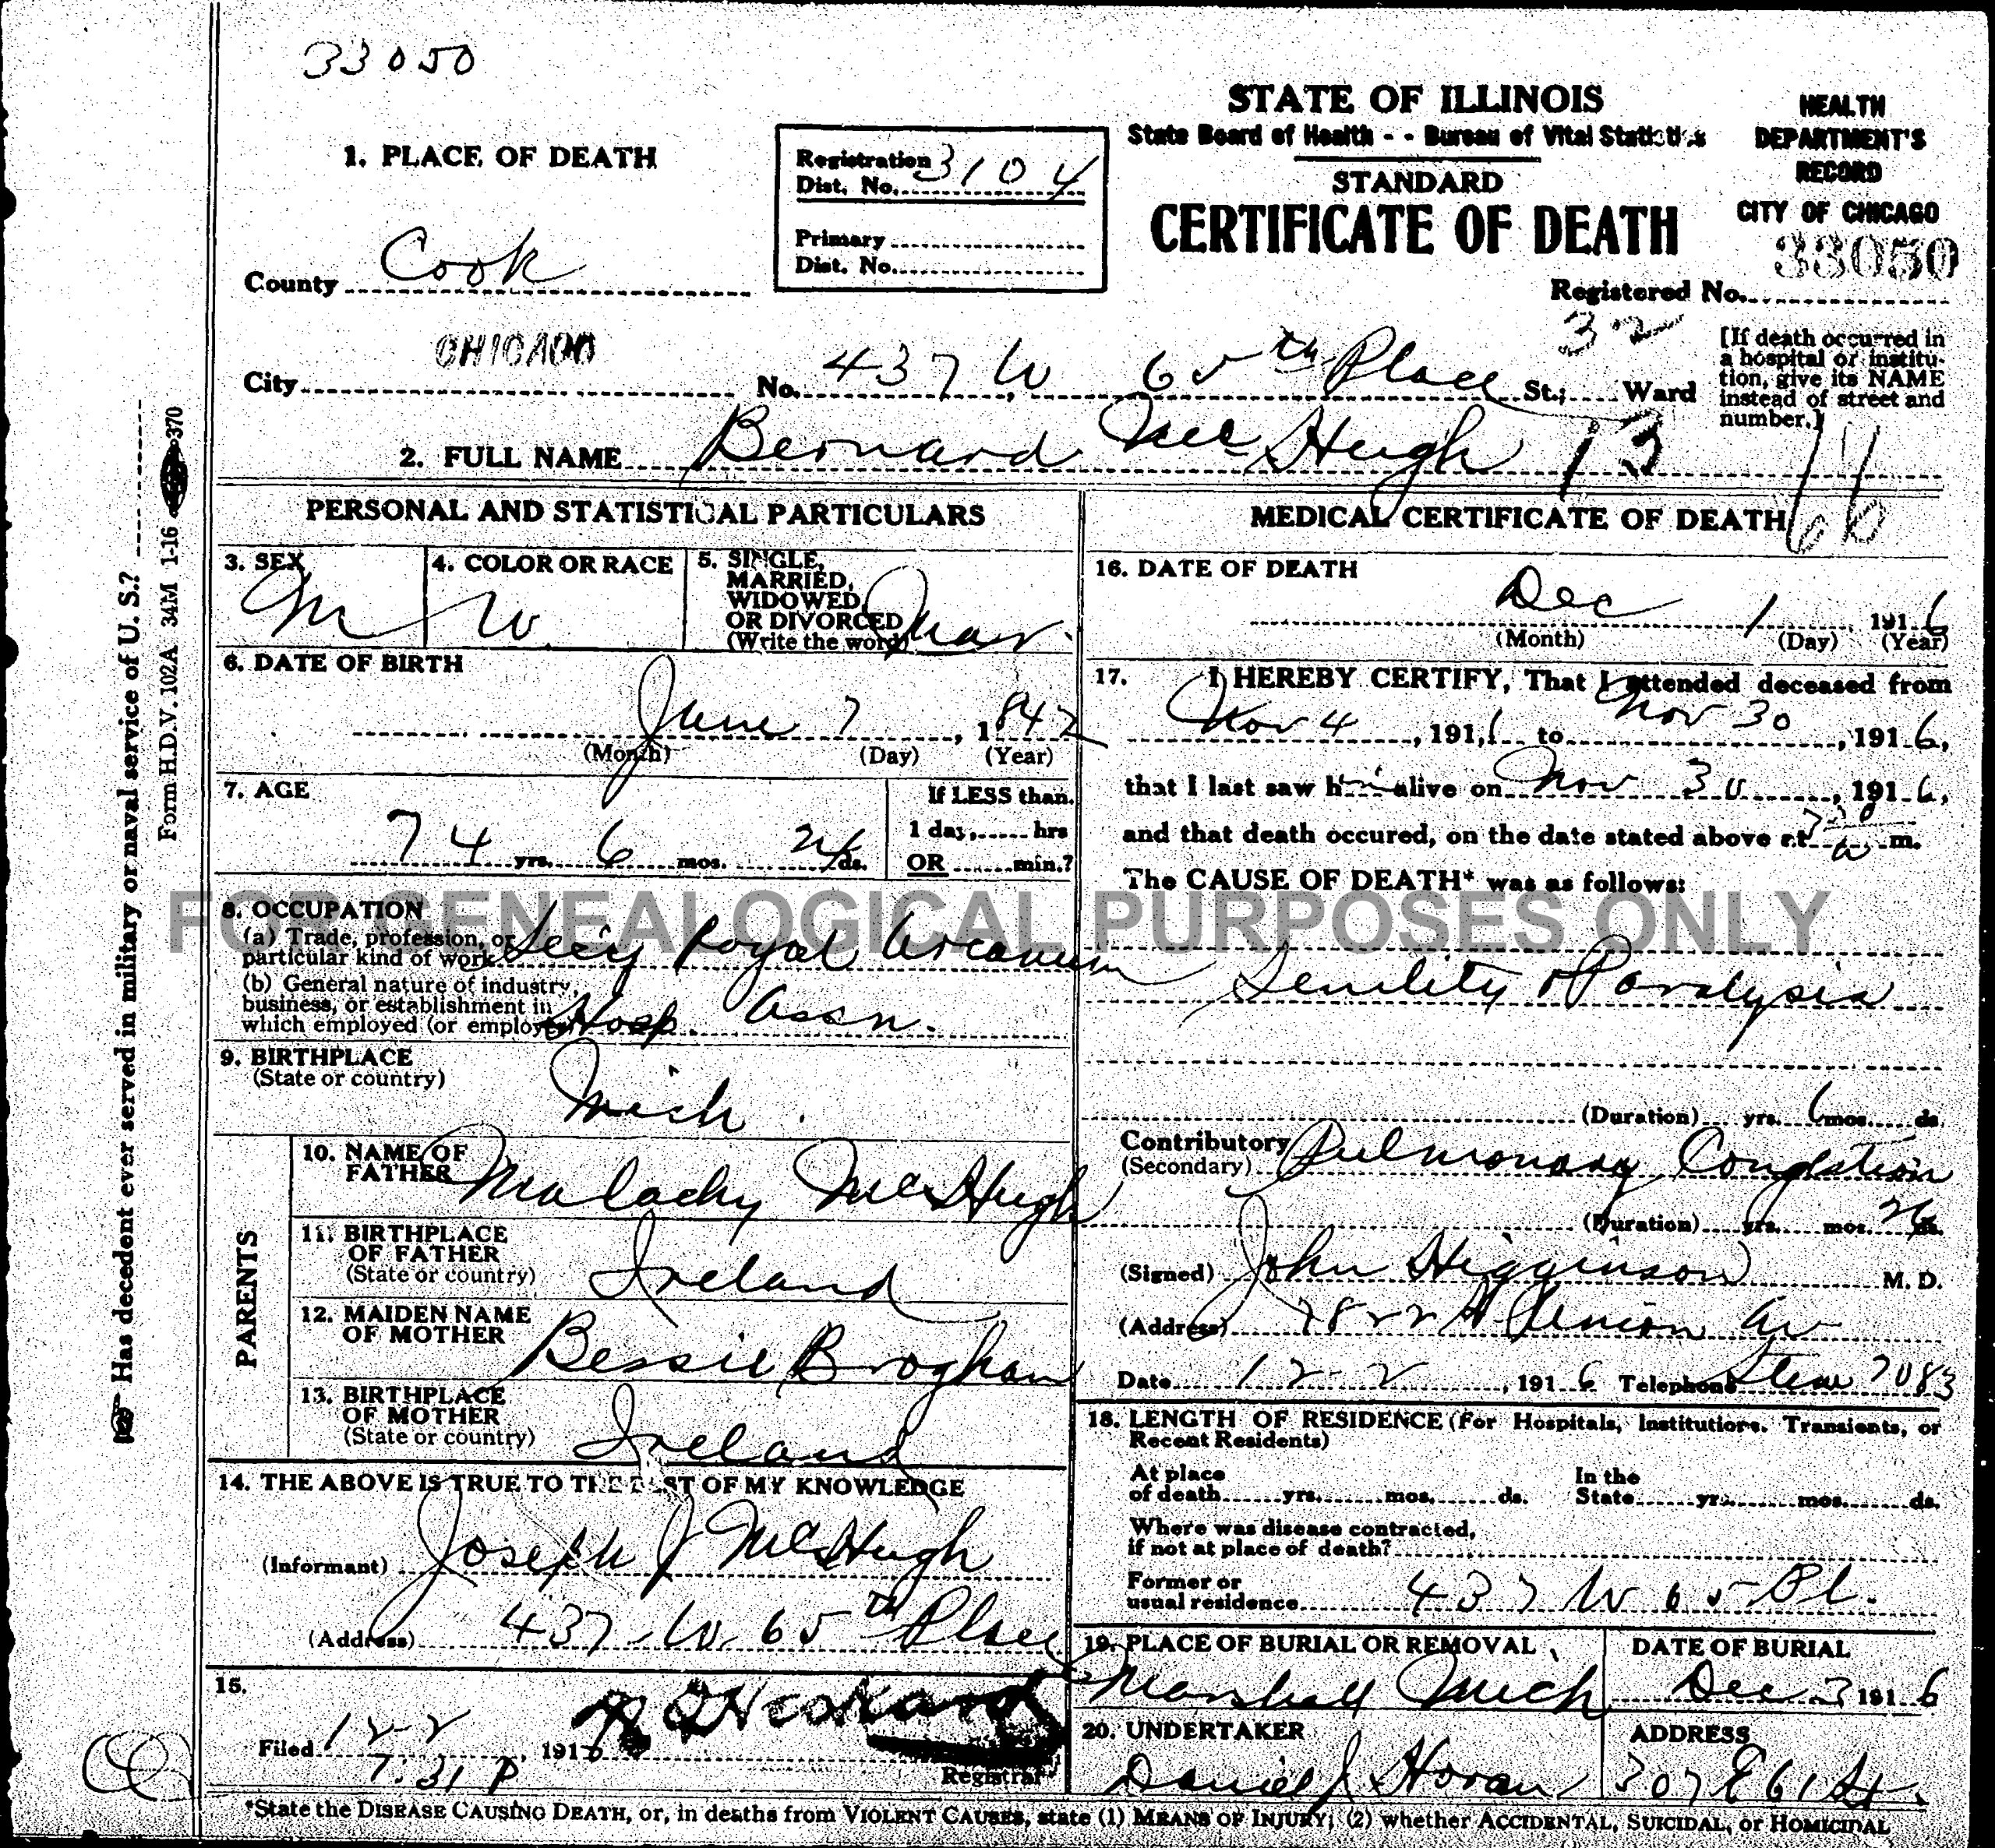 33050
STATE OF ILLINOIS
State Board of Health - - Bureau of Vital Statistics
STANDARD
CERTIFICATE OF DEATH
HEALTH
DEPARTMENT'S
RECORD
CITY OF CHICAGO
33050
Registered No.
1. PLACE OF DEATH
Registration
Dist. No. 3104
Primary
Dist. No.
County Cook
City CHICAGO No. 437 W 65th Place St.; 32 Ward
[If death occurred in
a hospital or institu-
tion, give its NAME
instead of street and
number.]
2. FULL NAME Bernard McHugh 13
PERSONAL AND STATISTICAL PARTICULARS
3. SEX M
4. COLOR OR RACE W
5. SINGLE,
MARRIED,
WIDOWED,
OR DIVORCED
(Write the word) Mar.
6. DATE OF BIRTH
June 7, 1842
(Month) (Day) (Year)
7. AGE
74 yrs. 6 mos. ds.
If LESS than
1 day, hrs
OR min.?
8. OCCUPATION
(a) Trade, profession, or
particular kind of work Sec'y Royal Arcanum
(b) General nature of industry,
business, or establishment in
which employed (or employer) Hosp. Assn.
9. BIRTHPLACE
(State or country) Mich.
PARENTS
10. NAME OF
FATHER Malachy McHugh
11. BIRTHPLACE
OF FATHER
(State or country) Ireland
12. MAIDEN NAME
OF MOTHER Bessie Broghan
13. BIRTHPLACE
OF MOTHER
(State or country) Ireland
14. THE ABOVE IS TRUE TO THE BEST OF MY KNOWLEDGE
(Informant) Joseph J McHugh
(Address) 437 W. 65th Place
15.
Filed 12-2, 1916
7.31 P
Registrar
MEDICAL CERTIFICATE OF DEATH
16. DATE OF DEATH
Dec 1, 1916
(Month) (Day) (Year)
17. I HEREBY CERTIFY, That I attended deceased from
Nov 4, 191 to Nov 30, 1916,
that I last saw him alive on Nov 30, 1916,
and that death occured, on the date stated above at 7 30 a m.
The CAUSE OF DEATH* was as follows:
Senility & Paralysis
(Duration) yrs. 6 mos. ds.
Contributory
(Secondary) Pulmonary Congestion
(Duration) yrs. mos. ds.
(Signed) John Higginson M. D.
(Address) Union Av
Date 12-2, 1916 Telephone Stew 7083
18. LENGTH OF RESIDENCE (For Hospitals, Institutions, Transients, or
Recent Residents)
At place
of death yrs. mos. ds.
In the
State yrs. mos. ds.
Where was disease contracted,
if not at place of death?
Former or
usual residence 437 W 65 Pl.
19. PLACE OF BURIAL OR REMOVAL
Marshall Mich
DATE OF BURIAL
Dec 3 1916
20. UNDERTAKER
Daniel J Horan
ADDRESS
307 E 61 St.
*State the DISEASE CAUSING DEATH, or, in deaths from VIOLENT CAUSES, state (1) MEANS OF INJURY; (2) whether ACCIDENTAL, SUICIDAL, or HOMICIDAL
Has decedent ever served in military or naval service of U. S.?
Form H.D.V. 102A 34M 1-16 370
FOR GENEALOGICAL PURPOSES ONLY